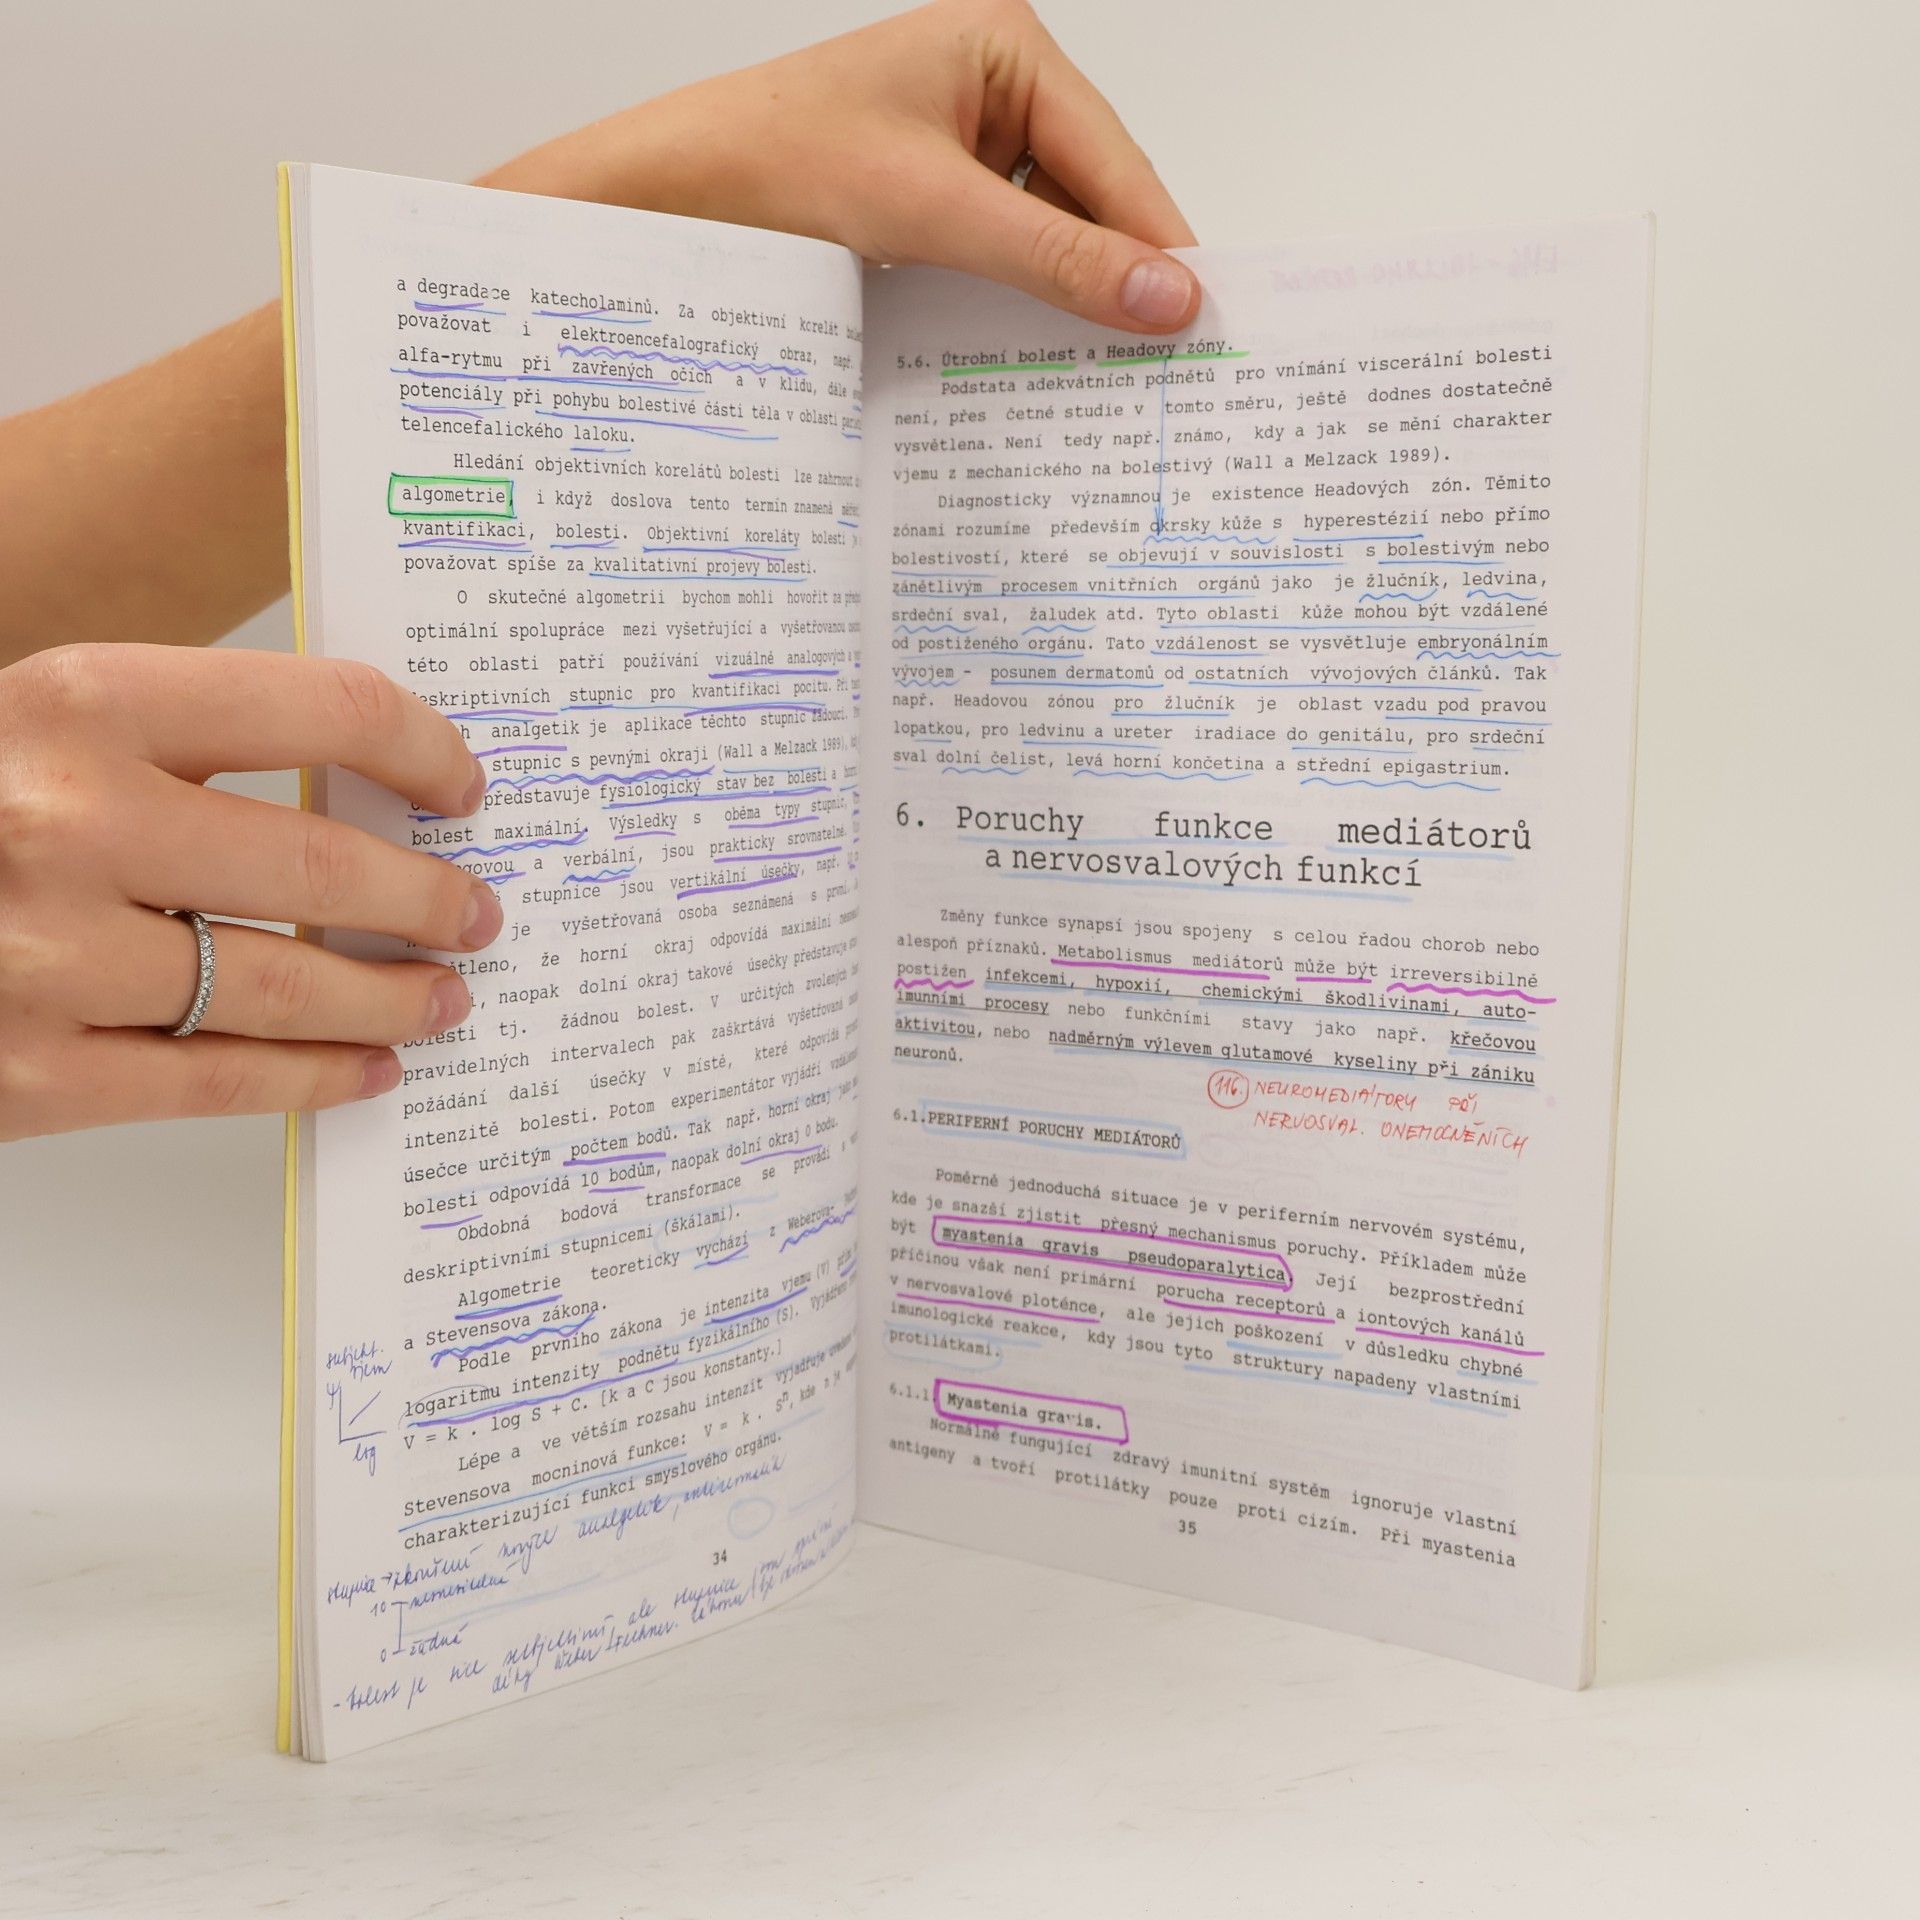 a degradace katecholaminů. Za objektivní korelát
považovat i elektroencefalografický obraz, např.
alfa-rytmu při zavřených očích a v klidu, dále
potenciály při pohybu bolestivé části těla v oblasti
telencefalického laloku.
Hledání objektivních korelátů bolesti lze zahrnout
algometrie, i když doslova tento termín znamená
kvantifikaci, bolesti. Objektivní koreláty bolesti
považovat spíše za kvalitativní projevy bolesti.
O skutečné algometrii bychom mohli hovořit za
optimální spolupráce mezi vyšetřující a vyšetřovanou
této oblasti patří používání vizuálně analogových a
deskriptivních stupnic pro kvantifikaci pocitu. Při
analgetik je aplikace těchto stupnic žádoucí.
stupnic s pevnými okraji (Wall a Melzack 1989),
představuje fysiologický stav bez bolesti a
bolest maximální. Výsledky s oběma typy stupnic,
a verbální, jsou prakticky srovnatelné.
stupnice jsou vertikální úsečky, např.
je vyšetřovaná osoba seznámená s první.
že horní okraj odpovídá maximální
naopak dolní okraj takové úsečky představuje
bolesti tj. žádnou bolest. V určitých zvolených
pravidelných intervalech pak zaškrtává vyšetřovaná
požádání další úsečky v místě, které odpovídá
intenzitě bolesti. Potom experimentátor vyjádří
úsečce určitým počtem bodů. Tak např. horní okraj
bolesti odpovídá 10 bodům, naopak dolní okraj 0 bodu.
Obdobná bodová transformace se provádí s
deskriptivními stupnicemi (škálami).
Algometrie teoreticky vychází z Weberova-
a Stevensova zákona.
Podle prvního zákona je intenzita vjemu (V)
logaritmu intenzity podnětu fyzikálního (S). Vyjádřeno
V = k . log S + C. [k a C jsou konstanty.]
Lépe a ve větším rozsahu intenzit vyjadřuje
Stevensova mocninová funkce: V = k . Sⁿ, kde n je
charakterizující funkci smyslového orgánu.
subjekt.
vjem
log
stupnice → zkoušení nových analgetik,
10
0 žádná
- bolest je sice subjektivní ale stupnice
díky Weber Fechner.
34
5.6. Útrobní bolest a Headovy zóny.
Podstata adekvátních podnětů pro vnímání viscerální bolesti
není, přes četné studie v tomto směru, ještě dodnes dostatečně
vysvětlena. Není tedy např. známo, kdy a jak se mění charakter
vjemu z mechanického na bolestivý (Wall a Melzack 1989).
Diagnosticky významnou je existence Headových zón. Těmito
zónami rozumíme především okrsky kůže s hyperestézií nebo přímo
bolestivostí, které se objevují v souvislosti s bolestivým nebo
zánětlivým procesem vnitřních orgánů jako je žlučník, ledvina,
srdeční sval, žaludek atd. Tyto oblasti kůže mohou být vzdálené
od postiženého orgánu. Tato vzdálenost se vysvětluje embryonálním
vývojem - posunem dermatomů od ostatních vývojových článků. Tak
např. Headovou zónou pro žlučník je oblast vzadu pod pravou
lopatkou, pro ledvinu a ureter iradiace do genitálu, pro srdeční
sval dolní čelist, levá horní končetina a střední epigastrium.
6. Poruchy funkce mediátorů
a nervosvalových funkcí
Změny funkce synapsí jsou spojeny s celou řadou chorob nebo
alespoň příznaků. Metabolismus mediátorů může být irreversibilně
postižen infekcemi, hypoxií, chemickými škodlivinami, auto-
imunními procesy nebo funkčními stavy jako např. křečovou
aktivitou, nebo nadměrným výlevem glutamové kyseliny při zániku
neuronů.
116. NEUROMEDIÁTORY PŘI
NERVOSVAL. ONEMOCNĚNÍCH
6.1.PERIFERNÍ PORUCHY MEDIÁTORŮ
Poměrně jednoduchá situace je v periferním nervovém systému,
kde je snazší zjistit přesný mechanismus poruchy. Příkladem může
být myastenia gravis pseudoparalytica. Její bezprostřední
příčinou však není primární porucha receptorů a iontových kanálů
v nervosvalové ploténce, ale jejich poškození v důsledku chybné
imunologické reakce, kdy jsou tyto struktury napadeny vlastními
protilátkami.
6.1.1. Myastenia gravis.
Normálně fungující zdravý imunitní systém ignoruje vlastní
antigeny a tvoří protilátky pouze proti cizím. Při myastenia
35